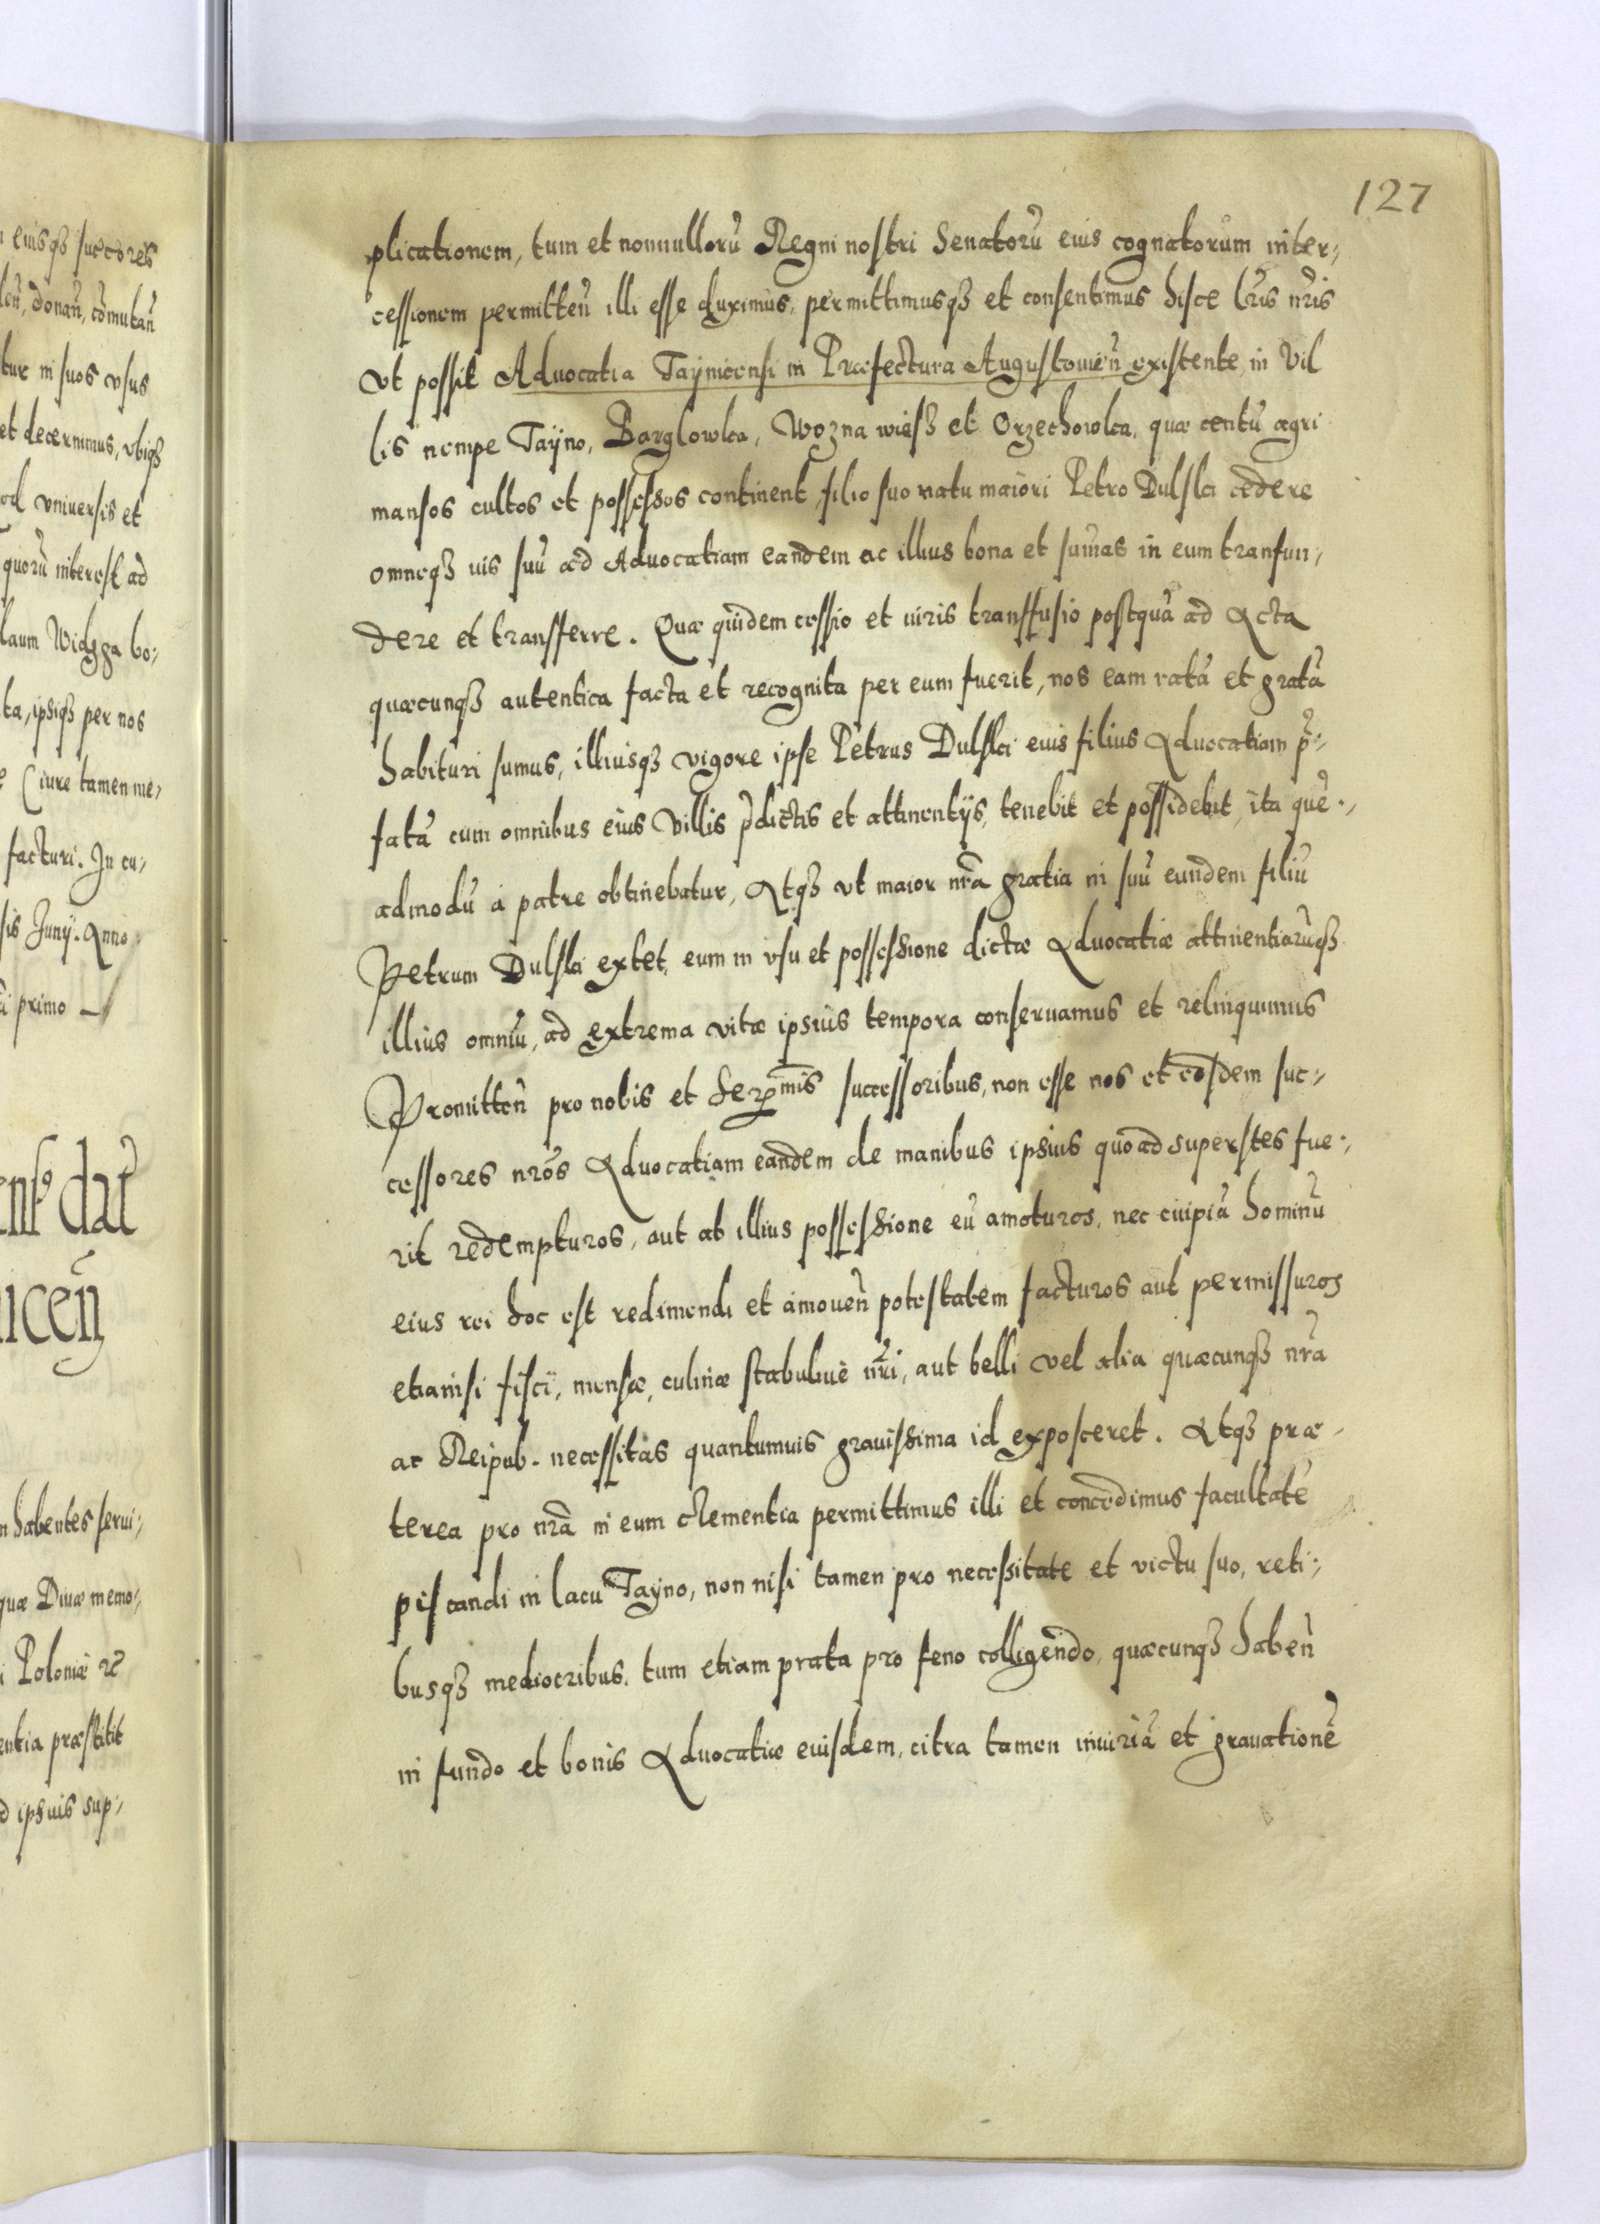 127
plicationem, tum et nonnulloru͂ Regni nostri Senatoru͂ eius cognatorum inter-
cessionem permitten͂ illi esse duximus, permittimusqꝫ et consentimus hisce lr͂is nr͂is
vt possit Aduocatia Tayniensi in Præfectura Augustouien͂ existente, in Vil
lis nempe Tayno, Barglowka, Wozna wiesß et Orzechowka, quæ centu͂ agri
mansos cultos et possessos continent, filio suo natu maiori Petro Dulski cedere
omneqꝫ ius suu͂ ad Aduocatiam eandem ac illius bona et sum͂as in eum tranfun-
dere et transferre. Quæ quidem cessio et iuris transfusio postqua͂ ad Acta
quæcunqꝫ autentica facta et recognita per eum fuerit, nos eam rata͂ et grata͂
habituri sumus, illiusqꝫ vigore ipse Petrus Dulski eius filius Aduocatiam p͂-
fata͂ cum omnibus eius Villis p͂dictis et attinentijs, tenebit et possidebit, ita que͂-
admodu͂ à patre obtinebatur, Atqꝫ vt maior nr͂a gratia in suu͂ eundem filiu͂
Petrum Dulski extet, eum in vsu et possessione dictæ Aduocatiæ attinentiaru͂qꝫ
illius omniu͂, ad extrema vitæ ipsius tempora conseruamus et relinquimus
Promitten͂ pro nobis et Serꝫmis successoribus, non esse nos et eosdem suc-
cessores nr͂os Aduocatiam eandem de manibus ipsius quoad superstes fue-
rit redempturos, aut ab illius possessione eu͂ amoturos, nec cuipia͂ hominu͂
eius rei hoc est redimendi et amouen͂ potestatem facturos aut permissuros
etiamsi fisci, mensæ, culinæ stabuliue nr͂i, aut belli vel alia quæcunqꝫ nr͂a
ac Reipub. necessitas quantumuis grauissima id exposceret. Atqꝫ præ-
terea pro nr͂a in eum clementia permittimus illi et concedimus facultate͂
piscandi in lacu Tayno, non nisi tamen pro necessitate et victu suo, reti-
busqꝫ mediocribus, tum etiam prata pro feno colligendo, quæcunqꝫ haben͂
in fundo et bonis Aduocatiæ eiusdem, citra tamen iniuria͂ et grauatione͂